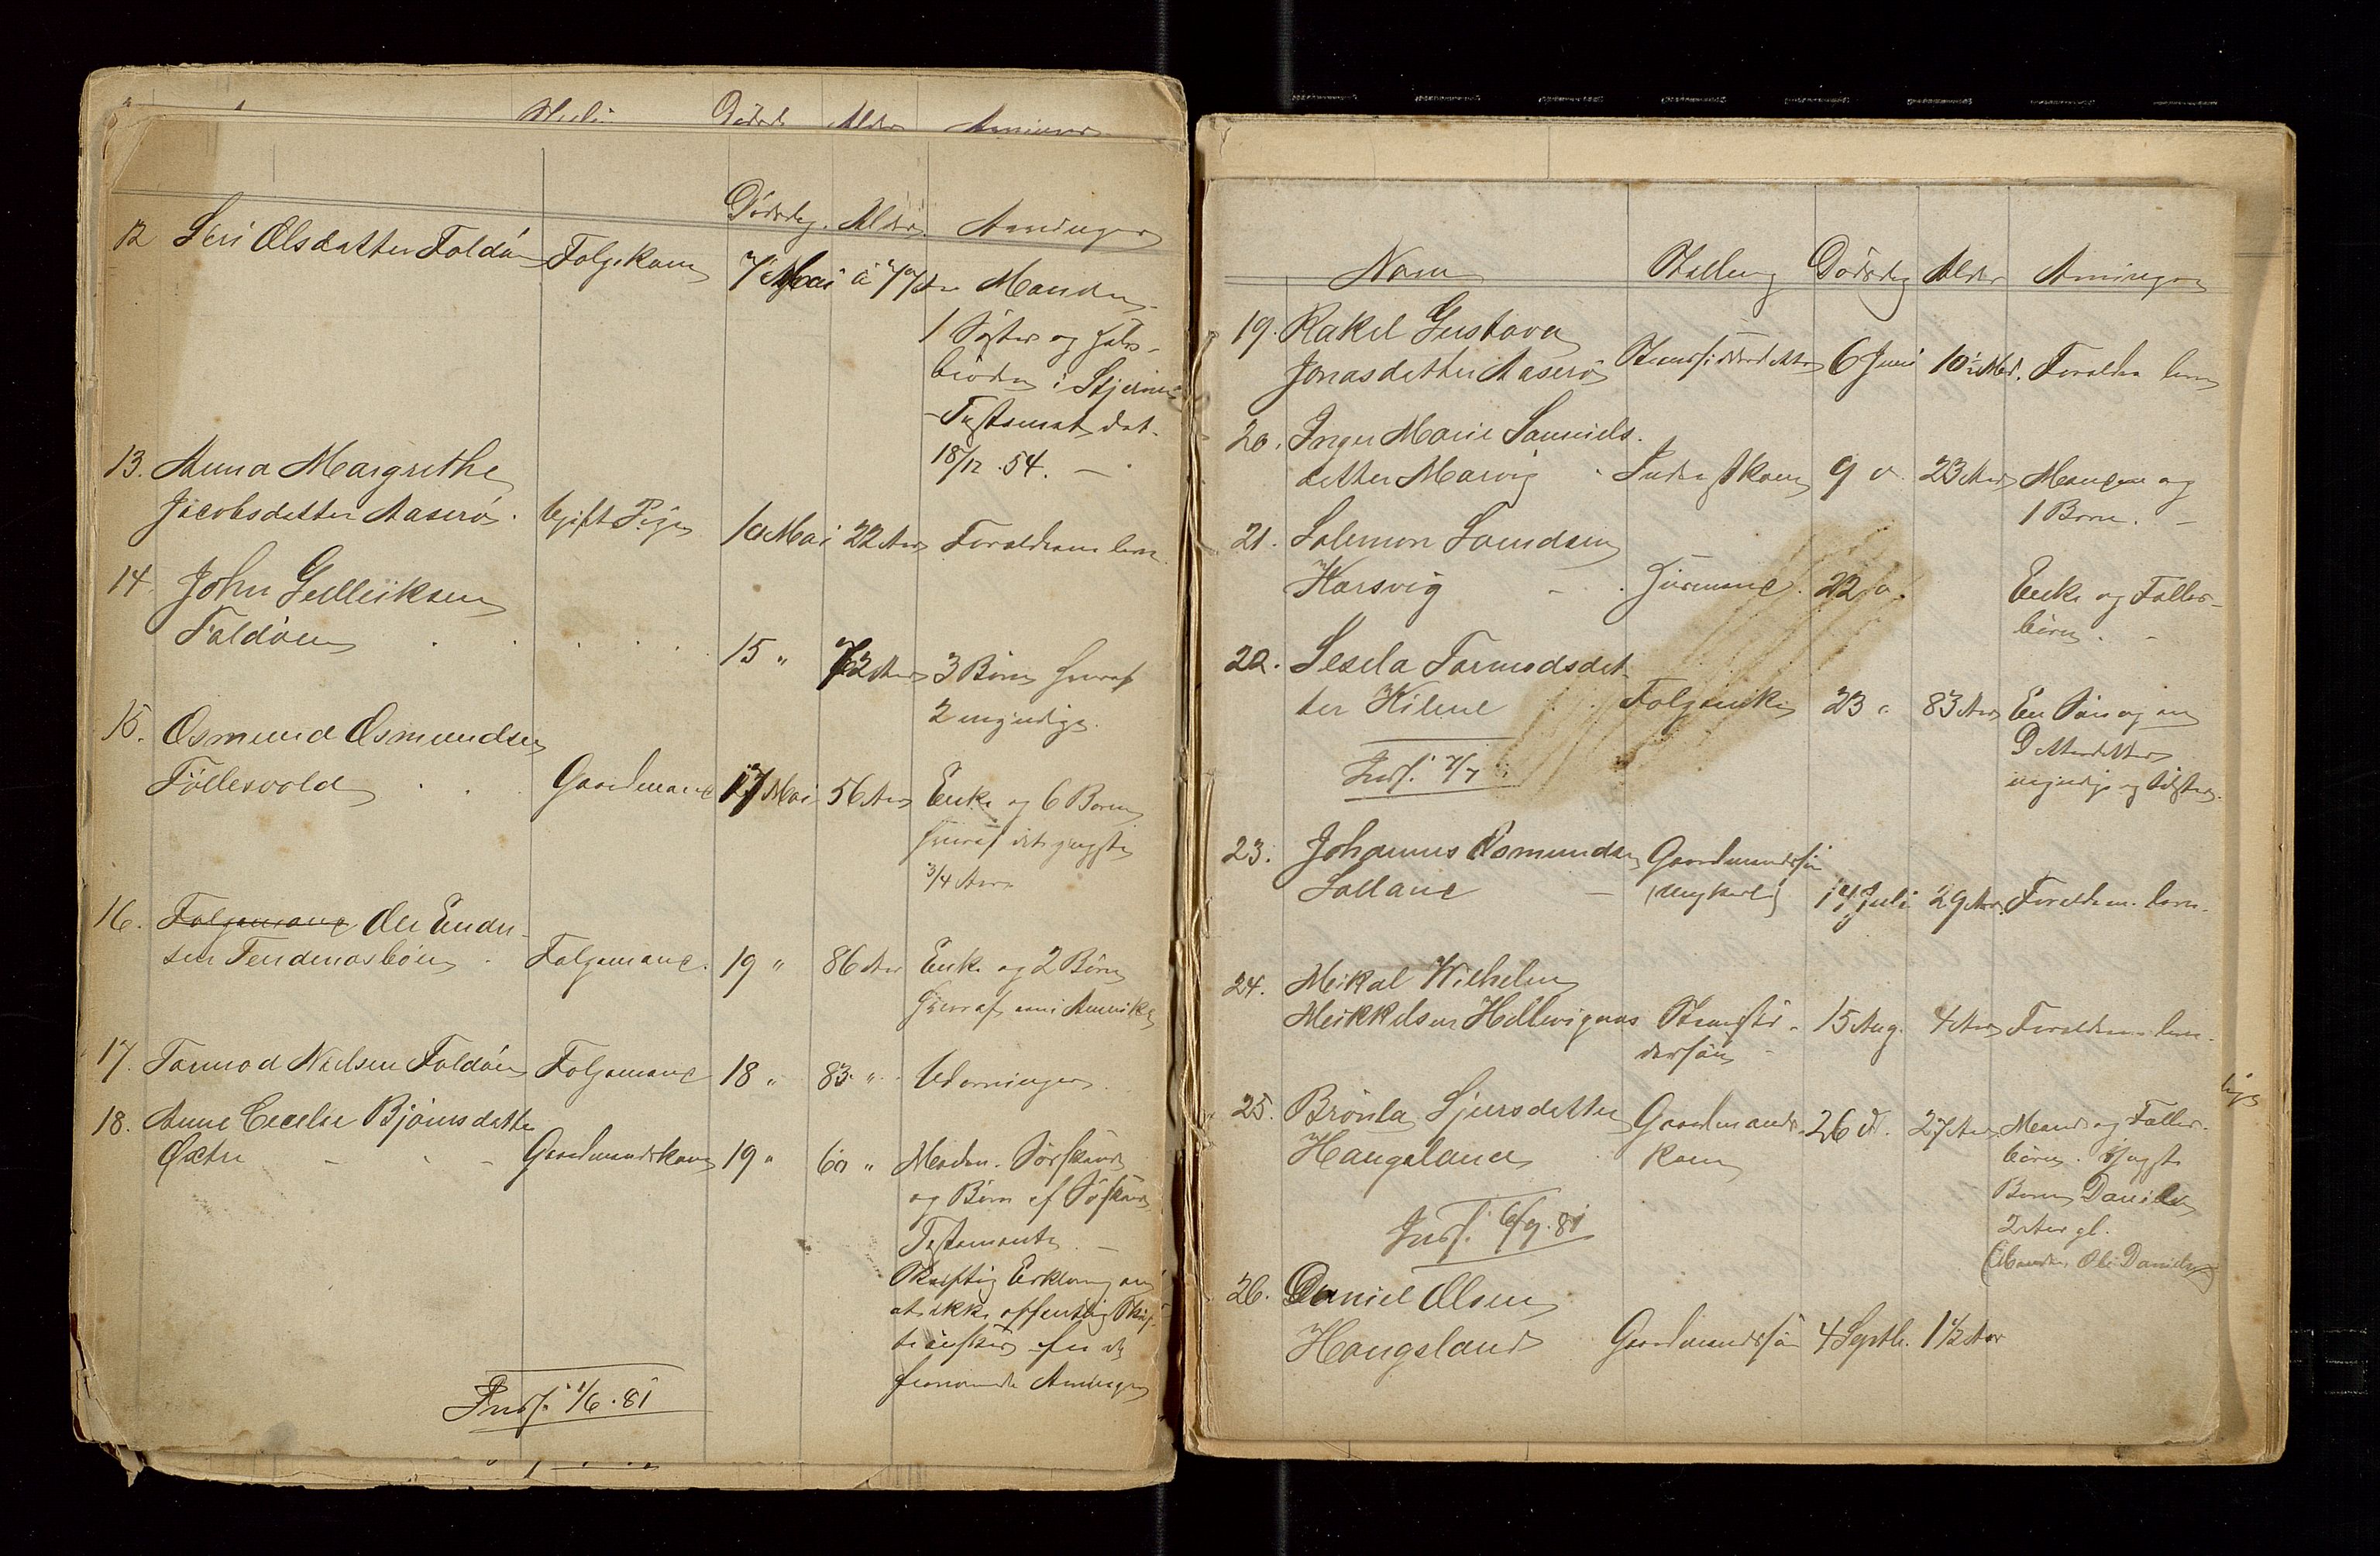 Dødsd Alder
Dødsdg. Alder. Anmdnger
12 Siri Olsdatter Foldøen Folgekone 7 Mai a 77 Aar Manden
1 Søster og Halv-
brødre i Stjerne
- Testament dat.
18/12 .54. -
13. Anna Margrethe
Jacobsdatter Aaserø. ugift Pige 10 Mai 22 Aar Forældrene leve
14 John Gulleiksen
Foldøen 15 " 72 Aar 3 Børn hvoraf
2 myndige.
15. Osmund Osmundsen
Føllesvold Gaardmand 17 Mai 56 Aar Enke og 6 Børn
hvoraf det yngste
3/4 Aar
16. Folgemand Ole Ender-
sen Tendenasbøen Folgemand. 19 " 86 Aar Enke og 2 Børn
hvoraf en i Amerika
17. Tormod Nielsen Foldøen Folgemand 18 " 83 " Udarvinger
18. Anne Cecelie Bjørnsdatter
Østre - - Gaardmandskone 19 " 60 " Manden. Søskende
og Børn af Søskende
Testamente. -
Skriftlig Erklæring om
at ikke offentlig Skif-
te ønskes
Indf. 1/6.81
Navn Stilling Dødsdg Alder Anmningen
19. Rakel Gustava
Jonasdatter Aaserø Strandsidderdatter 6 Juni 10 Md. Forældre leve
20. Inger Marie Samuels-
datter Marvig 9 " 23 Aar Manden og
1 Barn. -
21. Salomon Svendsen
Karsvig - Huusmand. 22 " Enke og Fælles-
børn. -
22. Sesela Tormodsdat-
ter Kilene Folgeenke 23 " 83 Aar En Søn og en
Datterdatter
myndige og tilstede.
Indf. 2/7
23. Johannes Osmundsen Gaardmandssøn
Lalland - (Ungkarl) 14 Juli 29 Aar. Forældrene leve.
24. Mikal Wilhelm
Mikkelsen Hellevignes Strandsid-
dersøn - 15 Aug. 4 Aar Forældrene leve.
25. Brønla Sjursdatter Gaardmands- 26 d. 27 Aar. Mand og Fælles-
Haugeland kone børn. Yngste
Barn Daniel
2 Aar gl.
(Manden Ole Danielsen)
Indf. 6/9.81
26. Daniel Olsen
Haugeland Gaardmandssøn 4 Septb. 1 1/2 Aar